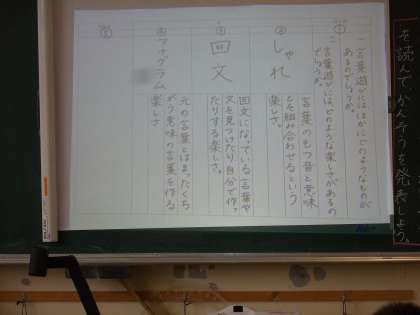 を読んでかんそうを発表しよう。
①
一、言葉遊びには、ほかにどのようなものが
あるのでしょうか。
二、言葉遊びには、どのような楽しさがあるの
でしょうか。
②
しゃれ
言葉のもつ音と意味
とを組み合わせるという
楽しさ。
③
回文
回文になっている言葉や
文を見つけたり自分で作っ
たりする楽しさ。
④
アナグラム
元の言葉とはまったくち
がう意味の言葉を作る
楽しさ
⑤